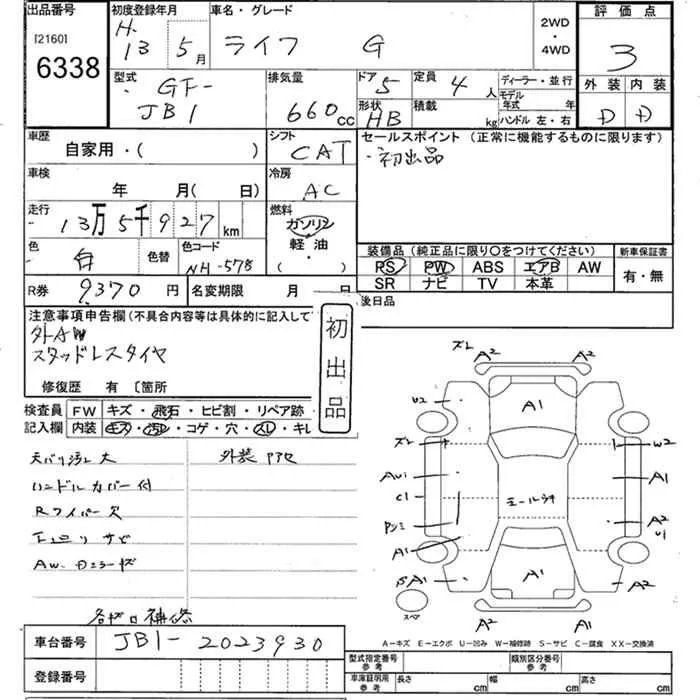 出品番号 初度登録年月 車名・グレード 2WD・4WD 評価点
[2160] 6338 H. 13 5月 ライフ G 3
型式 GF-JB1 排気量 660cc ドア 5 定員 4人 ディーラー・並行 外装 内装
形状 HB 積載 kg モデル年式 年 ハンドル 左・右 D D
車歴 自家用・( ) シフト CAT セールスポイント (正常に機能するものに限ります)
・初出品
車検 年 月( 日) 冷房 AC
走行 13万5千927km 燃料 ガソリン 軽油 ( )
色 白 色替 色コード NH-578
装備品 (純正品に限り〇をつけてください) 新車保証書
PS PW ABS エアB AW 有・無
SR ナビ TV 本革
R券 9370円 名変期限 月 日 後日品
注意事項申告欄 (不具合内容等は具体的に記入して
外AW
スタッドレスタイヤ
修復歴 有 〔箇所
初出品
検査員 FW キズ・飛石・ヒビ割・リペア跡・
記入欄 内装 キズ・汚レ・コゲ・穴・スレ・キレ
天バリ汚レ大 外装
ハンドルカバー付
Rワイパー欠
サビ
AW.
補修
車台番号 JB1-2023930
登録番号
A2 A2
A1
U2
W2
A1
C1
A1
ルーフ
A2
U1
S A1
A1
A2
A2 A1
スペア
A-キズ E-エクボ U-凹み W-補修跡 S-サビ C-腐食 XX-交換済
型式指定番号 参考 類別区分番号 参考
車庫証明用 参考 長さ cm 幅 cm 高さ cm